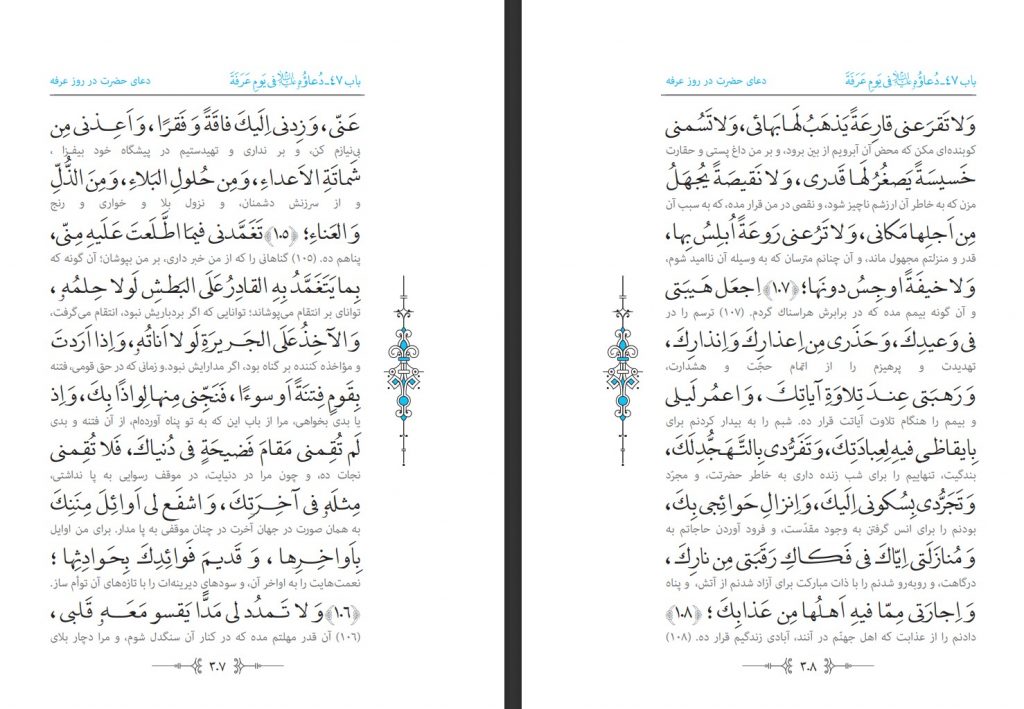 باب ۴۷ـ دُعاؤُهُ علیه‌السلام فی یَومِ عَرَفَةَ دعای حضرت در روز عرفه
عَنّی، وَ زِدنی اِلَیكَ فاقَةً وَ فَقرًا، وَ اَعِـذنی مِن
بی‌نیازم کن، و بر نداری و تهیدستیم در پیشگاه خود بیفـزا ،
شَماتَةِ الاَعداءِ، وَمِن حُلولِ البَلاءِ، وَمِنَ الذُّلِّ
و از سرزنش دشمنان، و نزول بلا و خواری و رنج
وَ العَناءِ؛ ﴿۱۰۵﴾ تَغَمَّدنی فیمَا اطَّلَعتَ عَلَیهِ مِنّی،
پناهم ده. (۱۰۵) گناهانی را که از من خبر داری، بر من بپوشان؛ آن گونه که
بِما یَتَغَمَّدُ بِهِ القادِرُ عَلَی البَطشِ لَولا حِلمُهُ ،
توانای بر انتقام می‌پوشاند؛ توانایی که اگر بردباریش نبود، انتقام می‌گرفت،
وَ الآخِذُ عَلَی الجَـریرَةِ لَولا اَناتُهُ، وَ اِذا اَرَدتَ
و مؤاخذه کننده بر گناه بود، اگر مدارایش نبود.و زمانی که در حق قومی، فتنه
بِقَومٍ فِتنَةً اَو سوءًا، فَنَجِّنی مِنها لِواذًا بِكَ، وَ اِذ
یا بدی بخواهی، مرا از باب این که به تو پناه آورده‌ام، از آن فتنه و بدی
لَم تُقِمنی مَقامَ فَضیحَةٍ فی دُنیاكَ، فَلا تُقِمنی
نجات ده، و چون مرا در دنیایت، در موقف رسوایی به پا نداشتی،
مِثلَهُ فی آخِـرَتِكَ ، وَ اشفَع لی اَوائِلَ مِنَنِكَ
به همان صورت در جهان آخرت در چنان موقفی به پا مدار. برای من اوایل
بِاَواخِـرِها ، وَ قَدیمَ فَوائِدِكَ بِحَوادِثِها ؛
نعمت‌هایت را به اواخر آن، و سودهای دیرینه‌ات را با تازه‌های آن توأم ساز.
﴿۱۰۶﴾ وَ لا تَـمدُد لی مَدًّا یَقسو مَعَـهُ قَلبی ،
(۱۰۶) آن قدر مهلتم مده که در کنار آن سنگدل شوم، و مرا دچار بلای
۳۰۷
باب ۴۷ـ دُعاؤُهُ علیه‌السلام فی یَومِ عَرَفَةَ دعای حضرت در روز عرفه
وَلا تَقرَعنی قارِعَةً یَذهَبُ لَها بَهائی، وَلا تَسُمنی
کوبنده‌ای مکن که محض آن آبرویم از بین برود، و بر من داغ پستی و حقارت
خَسیسَةً یَصغُرُ لَها قَدری ، وَ لا نَقیصَةً یُجهَلُ
مزن که به خاطر آن ارزشم ناچیز شود، و نقصی در من قرار مده، که به سبب آن
مِن اَجلِها مَکانی، وَ لا تَرُعنی رَوعَةً اُبلِسُ بِها،
قدر و منزلتم مجهول ماند، و آن چنانم مترسان که به وسیله آن ناامید شوم،
وَ لا خیفَةً اوجِسُ دونَها؛ ﴿۱۰۷﴾ اِجعَل هَـیبَتی
و آن گونه بیمم مده که در برابرش هراسناك گردم. (۱۰۷) ترسم را در
فی وَعیدِكَ ، وَ حَذَری مِن اِعذارِكَ وَ اِنذارِكَ ،
تهدیدت و پرهیزم را از اتمام حجّت و هشدارت،
وَ رَهبَتی عِنـدَ تِلاوَةِ آیاتِـكَ ، وَ اعمُر لَیلی
و بیمم را هنگام تلاوت آیاتت قرار ده. شبم را به بیدار کردنم برای
بِایقاظی فیهِ لِعِبادَتِكَ، وَ تَفَرُّدی بِالتَّـهَجُّدِ لَكَ،
بندگیت، تنهاییم را برای شب زنده داری به خاطر حضرتت، و مجرّد
وَ تَجَرُّدی بِسُکونی اِلَیكَ، وَ اِنزالِ حَوائِجی بِكَ ،
بودنم را برای انس گرفتن به وجود مقدّست، و فرود آوردن حاجاتم به
وَ مُنازَلَتی اِیّاكَ فی فَـکـاكِ رَقَبَتی مِن نارِكَ ،
درگاهت، و روبه‌رو شدنم را با ذات مبارکت برای آزاد شدنم از آتش، و پناه
وَ اِجارَتی مِمّا فیهِ اَهلُها مِن عَذابِكَ ؛ ﴿۱۰۸﴾
دادنم را از عذابت که اهل جهنّم در آنند، آبادی زندگیم قرار ده. (۱۰۸)
۳۰۸